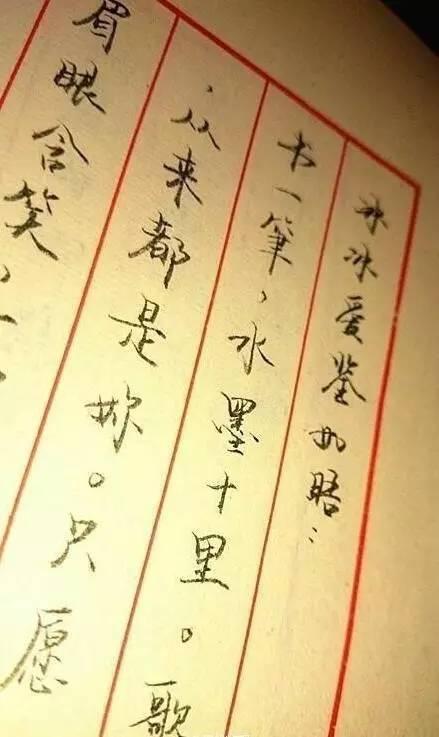 冰冰爱鉴如晤：
书一筆，水墨十里。歌
，从来都是妳。只愿
眉眼含笑，